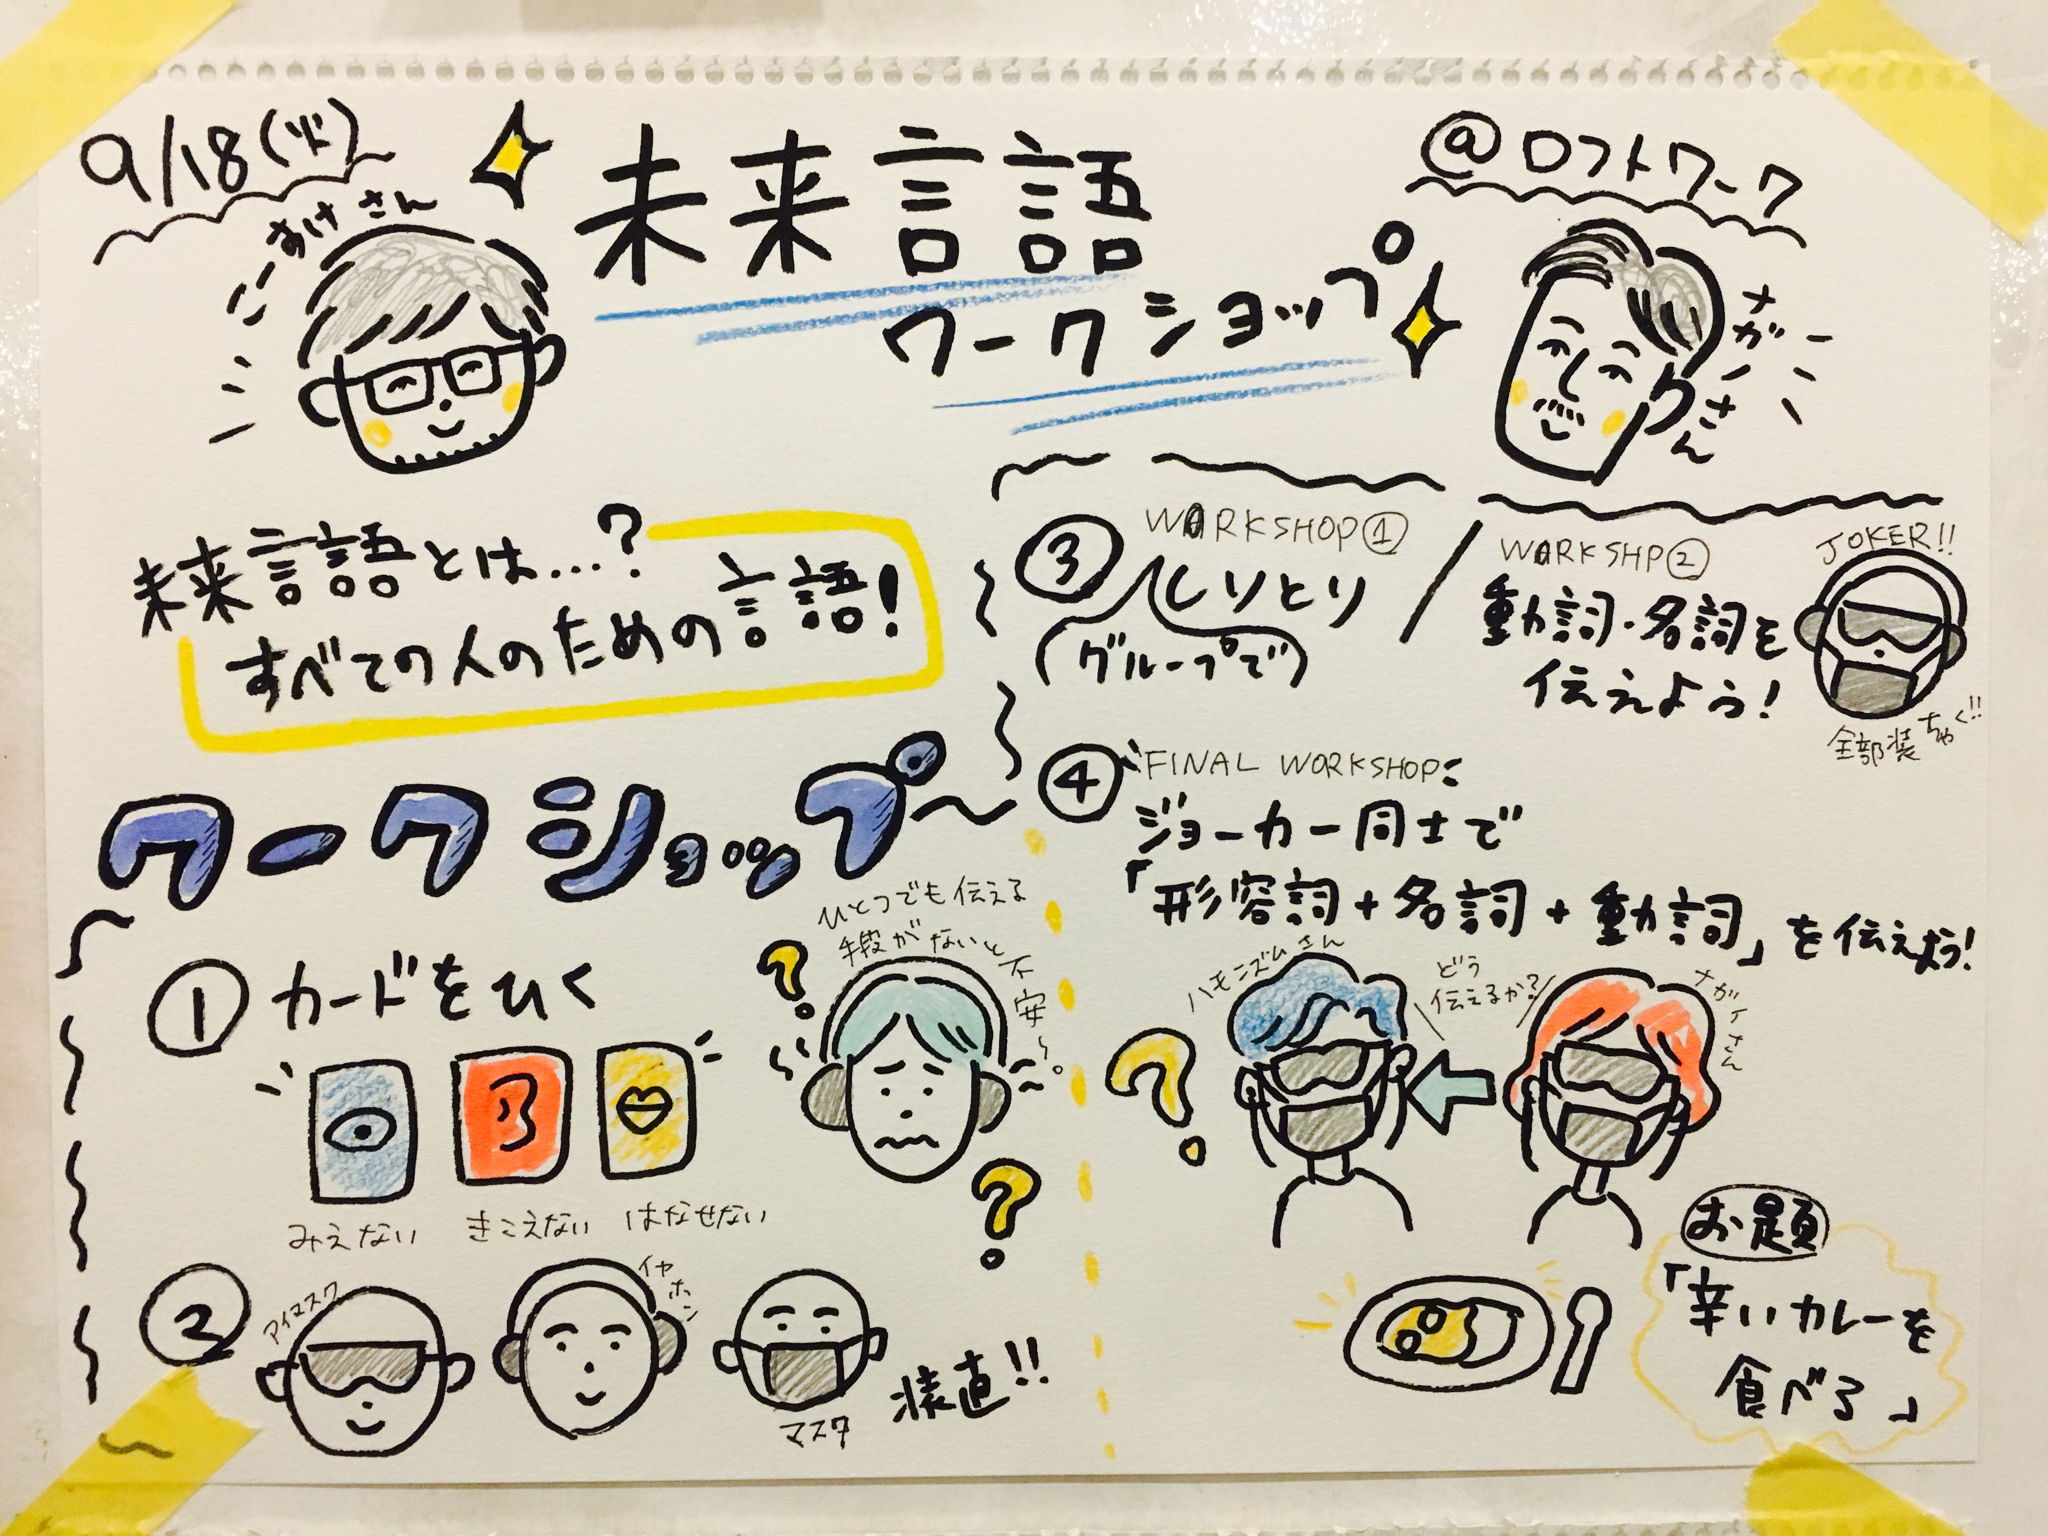 9/18(火)
未来言語
ワークショップ
@ロフトワーク
こーすけさん
ナガイさん
未来言語とは…?
すべての人のための言語!
ワークショップ
① カードをひく
みえない きこえない はなせない
ひとつでも伝える
手段がないと不安~。
②
アイマスク
イヤホン
マスク
装着!!
③ WORKSHOP①
しりとり
(グループで)
WORKSHP②
動詞・名詞を
伝えよう!
JOKER!!
全部装ちゃく!!
④ FINAL WORKSHOP
ジョーカー同士で
「形容詞+名詞+動詞」を伝えよう!
ハモニズムさん
どう
伝えるか?
ナガイさん
お題
「辛いカレーを
食べる」